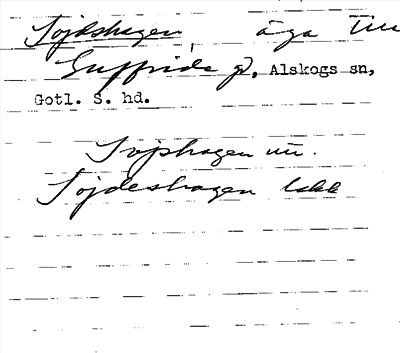 Tojdshagen, äga till
Guffride gd, Alskogs sn,
Gotl. S. hd.
Tojshagen
Tojdeshagen